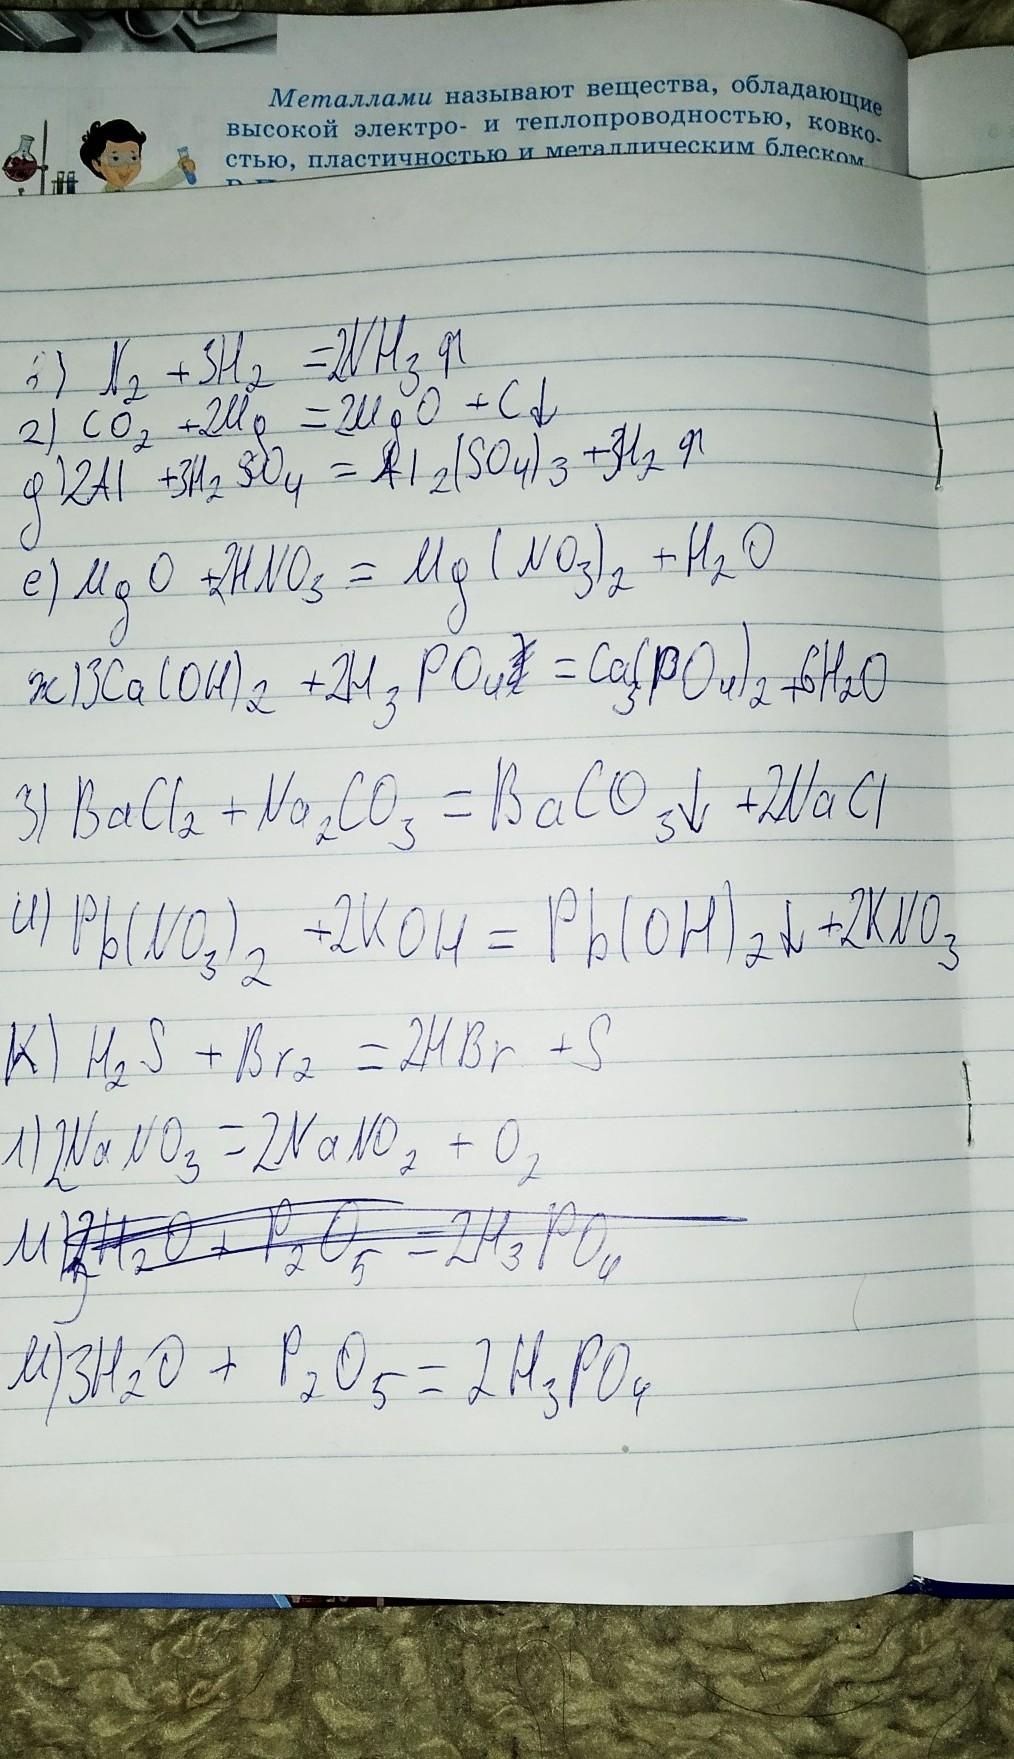 Металлами называют вещества, обладающие
высокой электро- и теплопроводностью, ковко-
стью, пластичностью и металлическим блеском
) N2 + 3H2 = 2NH3 ↑
г) CO2 + 2Mg = 2MgO + C↓
д) 2Al + 3H2SO4 = Al2(SO4)3 + 3H2 ↑
е) MgO + 2HNO3 = Mg(NO3)2 + H2O
ж) 3Ca(OH)2 + 2H3PO4 = Ca3(PO4)2 + 6H2O
з) BaCl2 + Na2CO3 = BaCO3↓ + 2NaCl
и) Pb(NO3)2 + 2KOH = Pb(OH)2↓ + 2KNO3
к) H2S + Br2 = 2HBr + S
л) 2NaNO3 = 2NaNO2 + O2
м) H2O + P2O5 = 2H3PO4
м) 3H2O + P2O5 = 2H3PO4